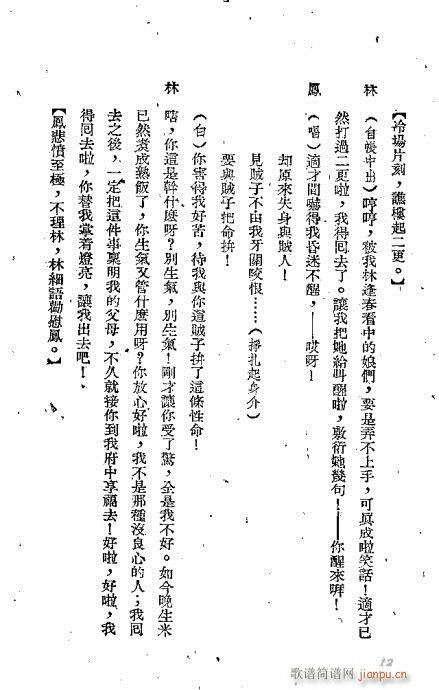 【冷場片刻，譙樓起二更。】
林　（自帳中出）哼哼，被我林逢春看中的娘們，要是弄不上手，可眞成啦笑話！適才已
然打過二更啦，我得回去了。讓我把她給叫醒啦，敷衍她幾句！——你醒來啊！
鳳　（唱）適才間嚇得我昏迷不醒，——哎呀！
却原來失身與賊人！
見賊子不由我牙關咬恨……（掙扎起身介）
要與賊子把命拚！
（白）你害得我好苦，待我與你這賊子拚了這條性命！
林　嘻，你這是幹什麼呀？別生氣，別生氣！剛才讓你受了驚，全是我不好。如今晚生米
已然煑成熟飯了，你生氣又管什麼用呀？你放心好啦，我不是那種沒良心的人；我回
去之後，一定把這件事稟明我的父母，不久就接你到我府中享福去！好啦，好啦，我
得回去啦，你替我掌着燈亮，讓我出去吧！
【鳳悲憤至極，不理林，林細語勸慰鳳。】
12
歌谱简谱网
jianpu.cn